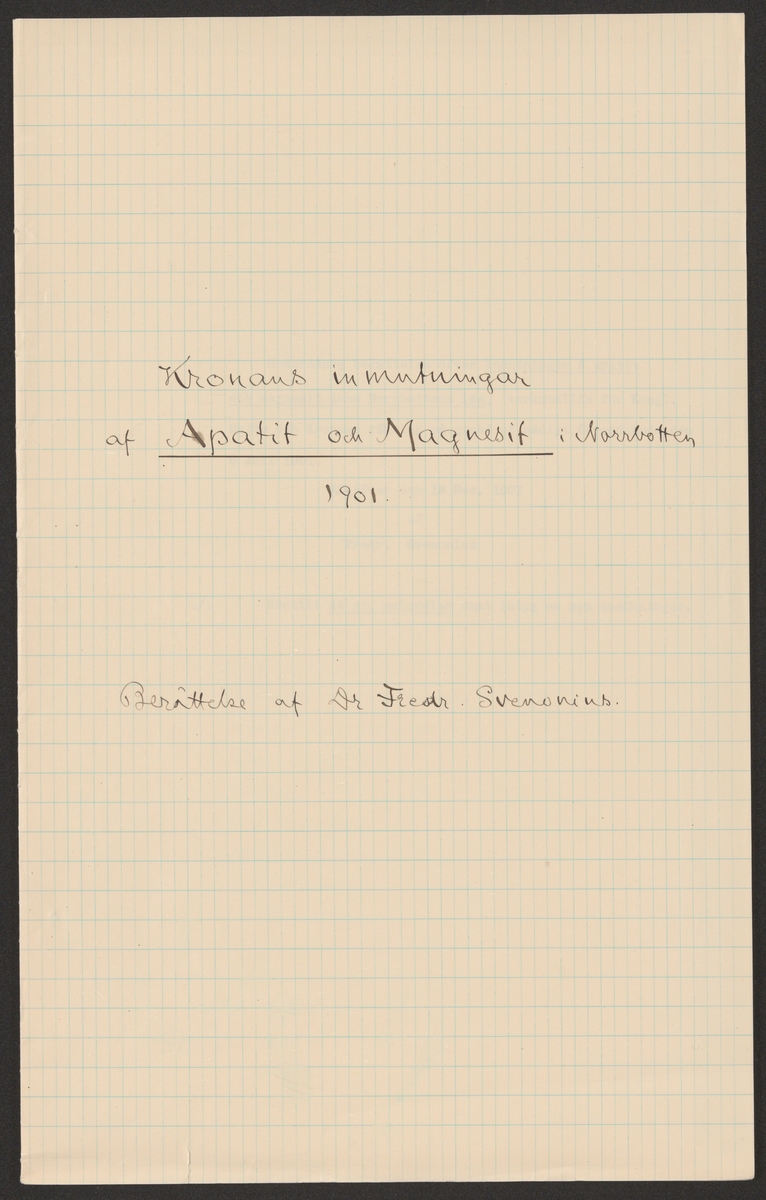 Kronans inmutningar
af Apatit och Magnesit i Norrbotten
1901.
Berättelse af Dr Fredr. Svenonius.